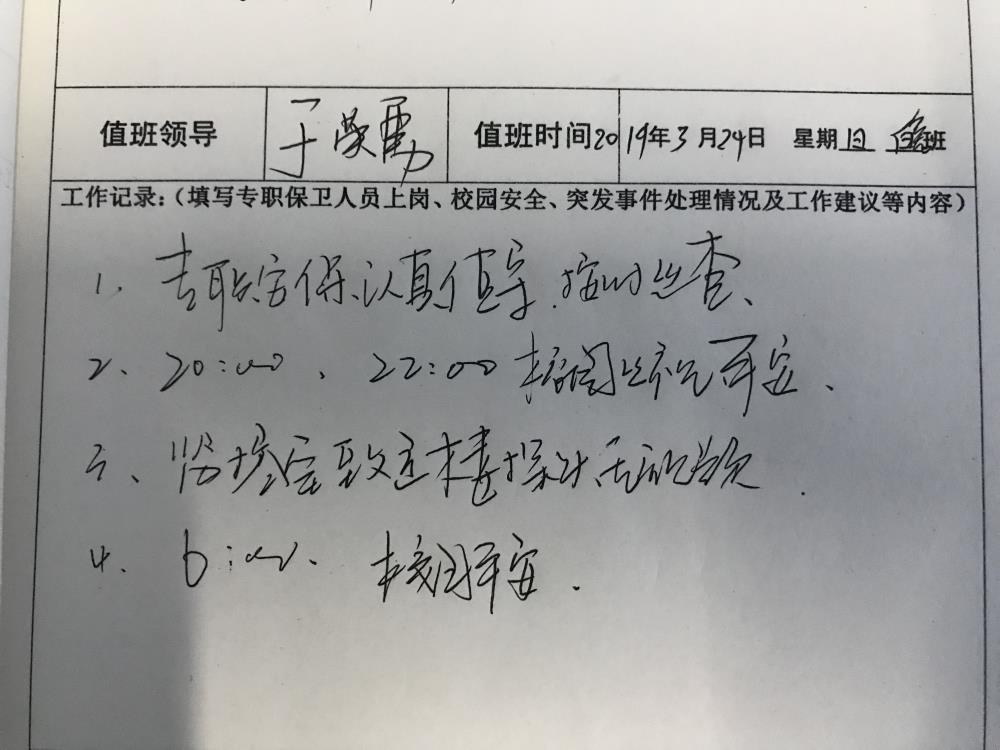 值班领导 于荣勇 值班时间2019年3月24日 星期日 值班
工作记录：（填写专职保卫人员上岗、校园安全、突发事件处理情况及工作建议等内容）
1、专职安保认真值守、按时巡查、
2、20:00、22:00校园巡视平安、
3、监控室 教学楼
4、6:00、校园平安.